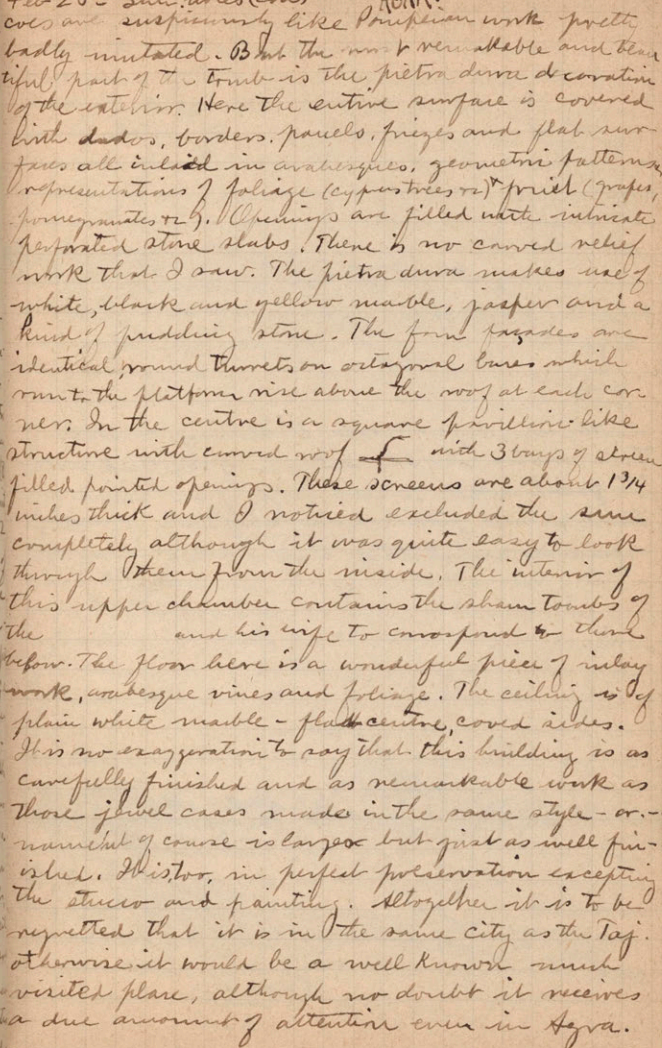 Feb 25 -
AGRA.
coes are suspiciously like Pompeian work pretty
badly imitated. But the most remarkable and beau
tiful part of the tomb is the pietra dura decoration
of the exterior. Here the entire surface is covered
with dados, borders, panels, friezes and flat sur-
faces all inlaid in arabesques, geometric patterns,
representations of foliage (cypress trees &c) & fruit (grapes,
pomegranates &c). Openings are filled with intricate
perforated stone slabs. There is no carved relief
work that I saw. The pietra dura makes use of
white, black and yellow marble, jasper and a
kind of pudding stone. The four façades are
identical, round turrets on octagonal bases which
run to the platform rise above the roof at each cor-
ner. In the centre is a square pavillion-like
structure with curved roof with 3 bays of screen
filled pointed openings. These screens are about 1 3/4
inches thick and I noticed excluded the sun
completely although it was quite easy to look
through them from the inside. The interior of
this upper chamber contains the sham tombs of
the and his wife to correspond to those
below. The floor here is a wonderful piece of inlay
work, arabesque vines and foliage. The ceiling is of
plain white marble - flat centre, coved sides.
It is no exaggeration to say that this building is as
carefully finished and as remarkable work as
those jewel cases made in the same style - or-
nament of course is larger but just as well fin-
ished. It is, too, in perfect preservation excepting
the stucco and painting. Altogether it is to be
regretted that it is in the same city as the Taj.
otherwise it would be a well known much
visited place, although no doubt it receives
a due amount of attention even in Agra.